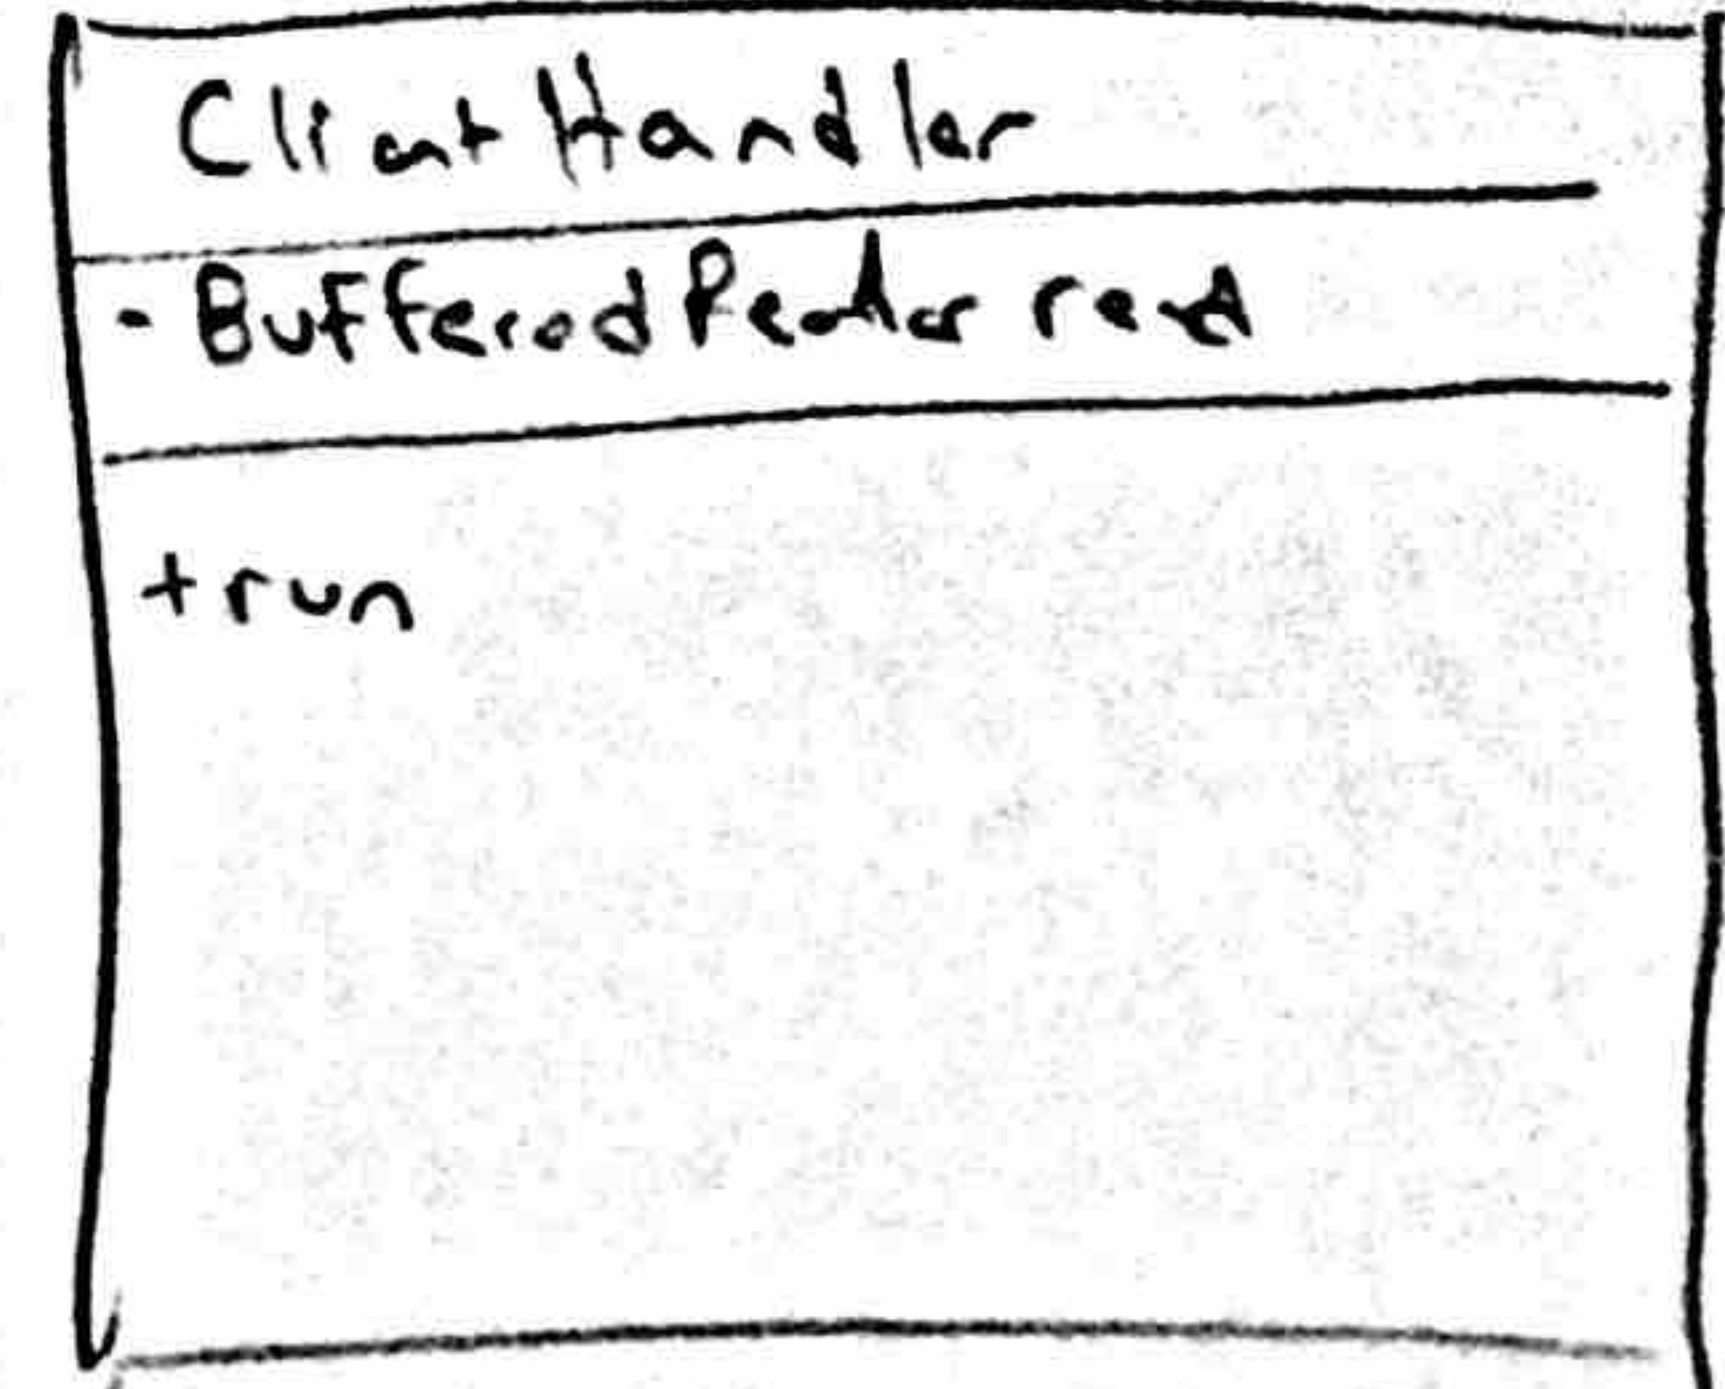 ClientHandler
- BufferedReader read
+ run